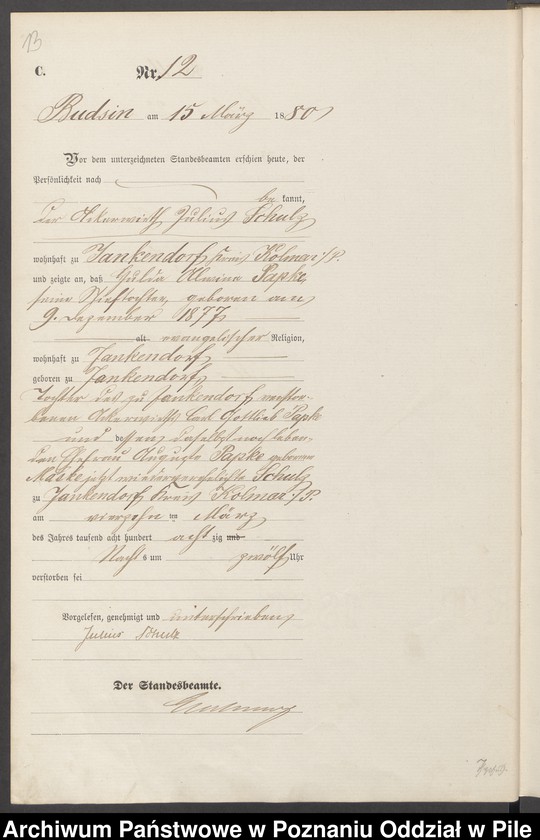 13
C. Nr. 12
Budsin am 15 März 1880
Vor dem unterzeichneten Standesbeamten erschien heute, der
Persönlichkeit nach
be kannt,
der Ackerwirth Julius Schulz
wohnhaft zu Jankendorf Kreis Kolmar i/P.
und zeigte an, daß Julia Alwine Papke
seine Stieftochter, geboren am
9. Dezember 1877
alt evangelischer Religion,
wohnhaft zu Jankendorf
geboren zu Jankendorf
Tochter des zu Jankendorf verstor-
benen Ackerwirths Carl Gottlieb Papke
und dessen daselbst noch leben-
den Ehefrau Auguste Papke geborene
Maske jetzt wiederverehelichte Schulz
zu Jankendorf Kreis Kolmar i/P.
am vierzehn ten März
des Jahres tausend acht hundert acht zig und
Nacht s um zwölf Uhr
verstorben sei
Vorgelesen, genehmigt und unterschrieben
Julius Schulz
Der Standesbeamte.
Archiwum Państwowe w Poznaniu Oddział w Pile